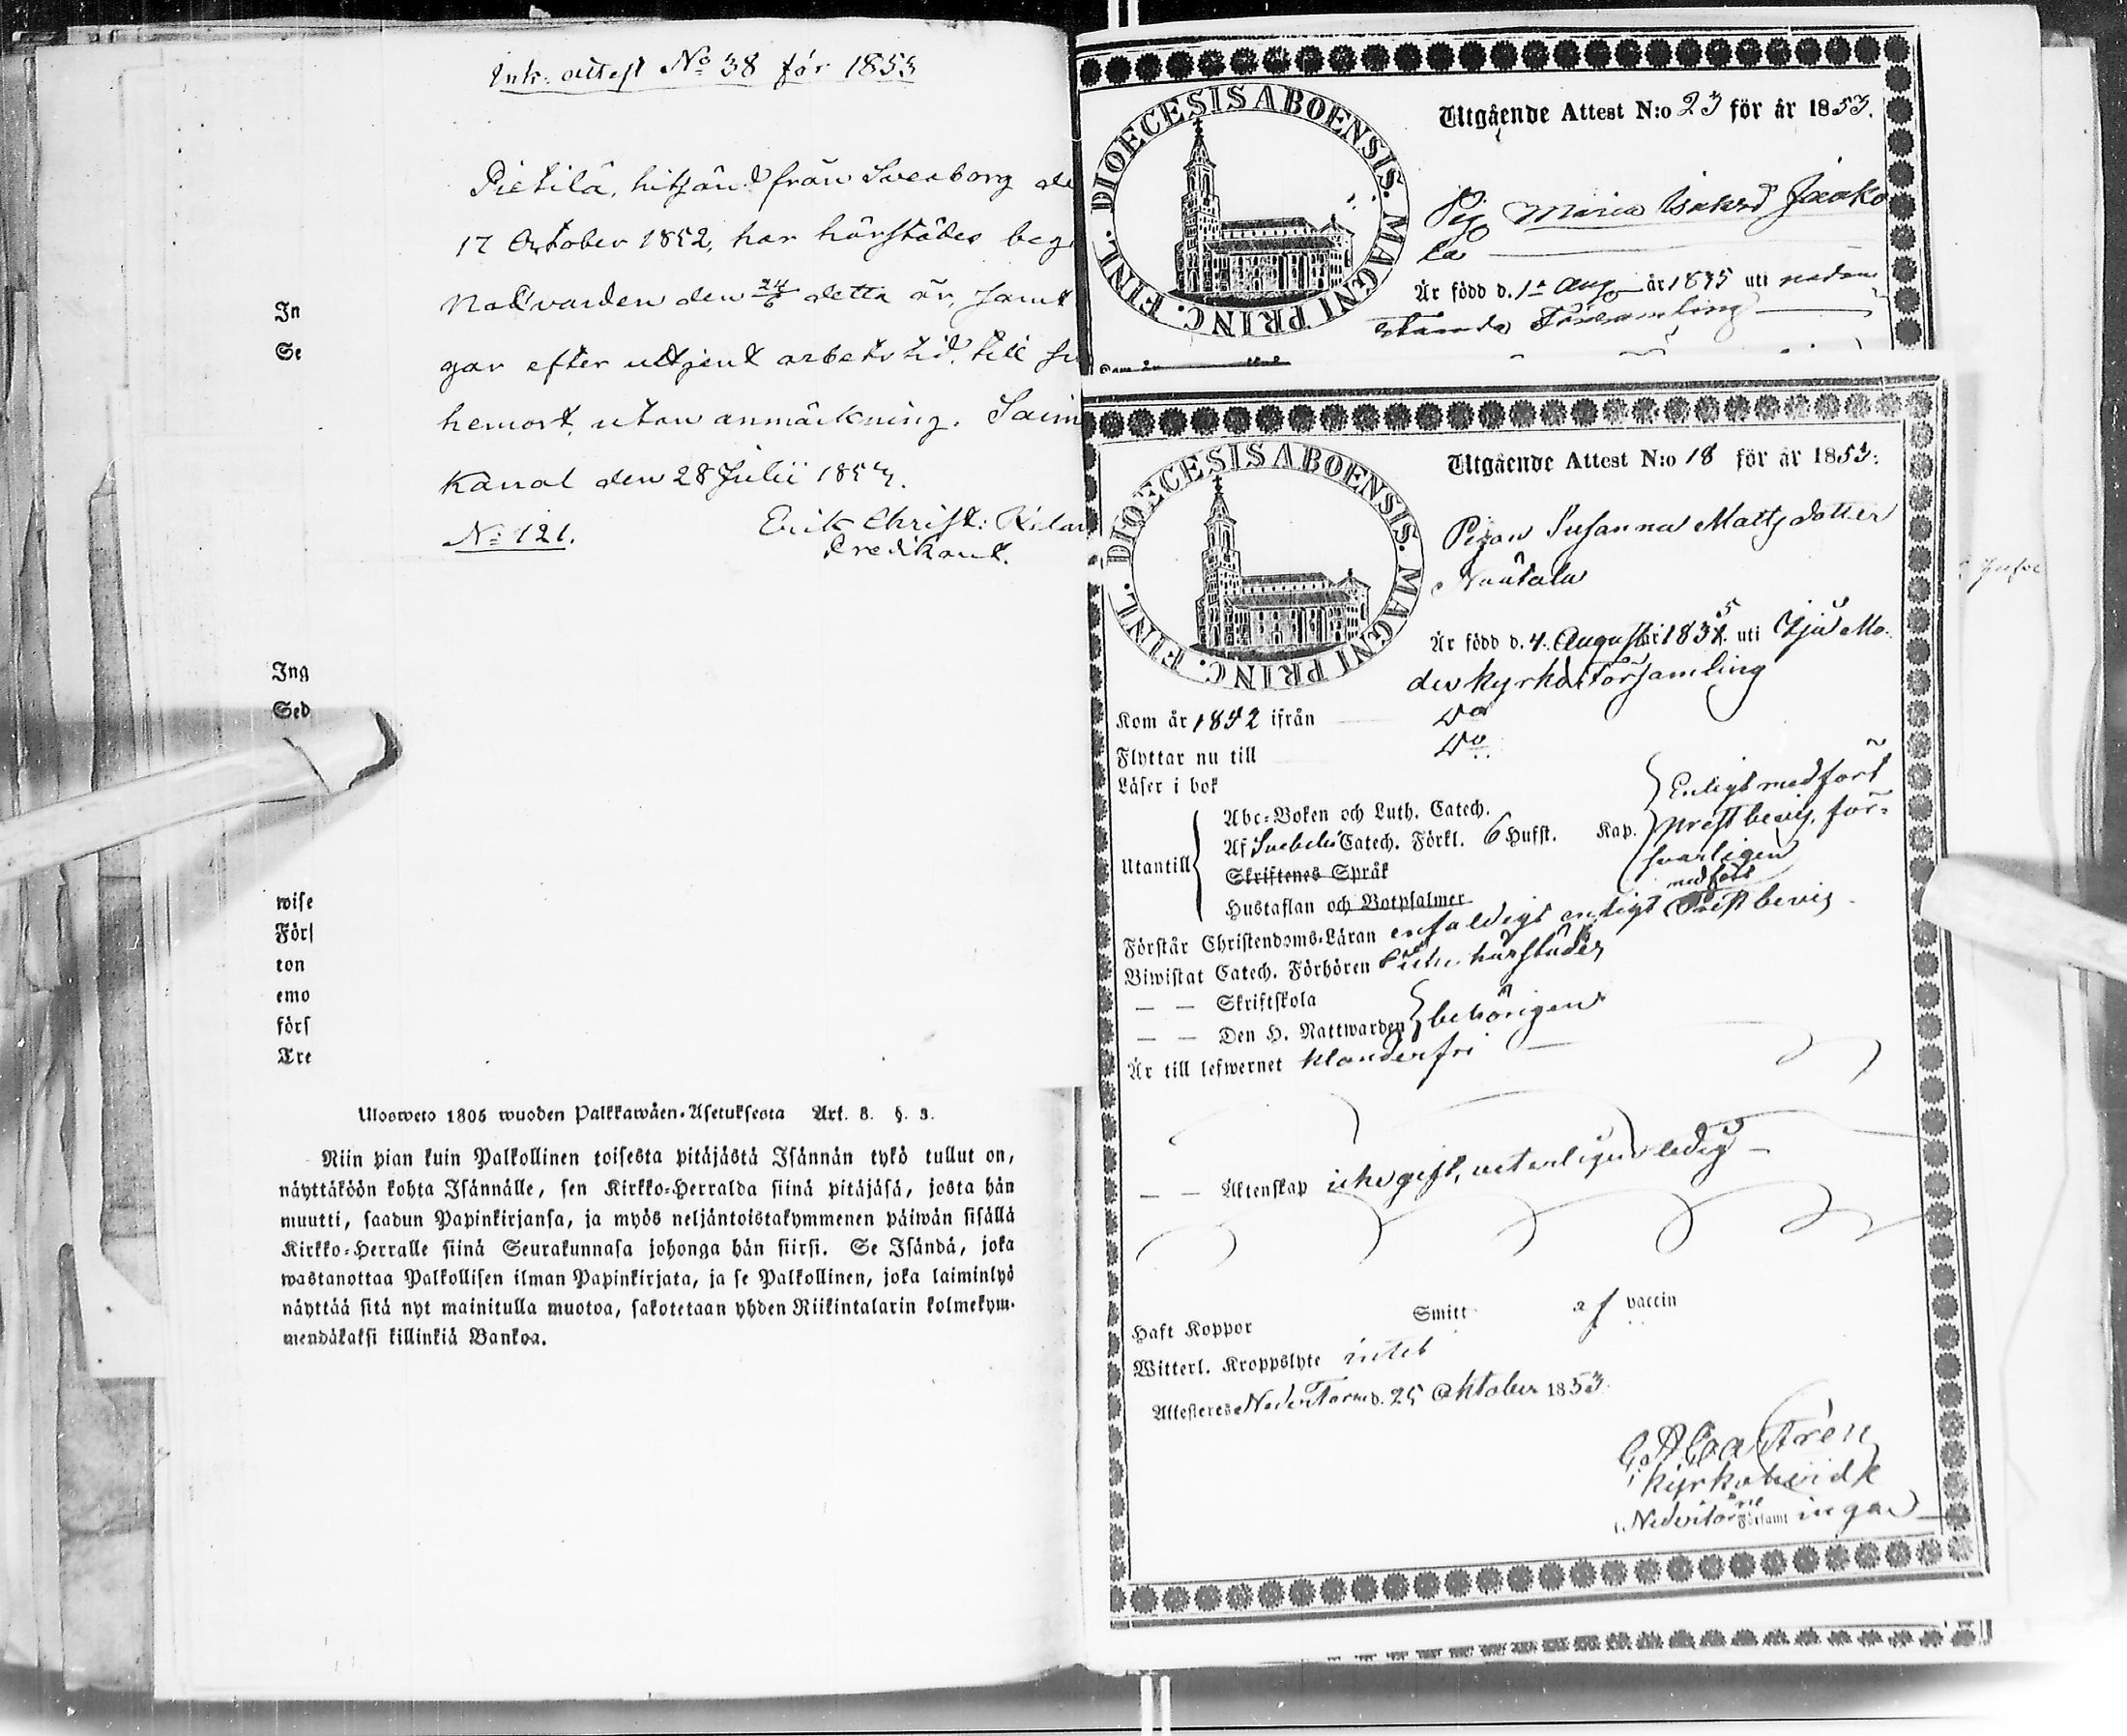 Ink: attest No 38 för 1853
Pietilä, hitsänd från Sveaborg de
17 October 1852, har härstädes beg
Nattvarden den 24/6 detta år, samt
går efter uttjent arbetstid, till
hemort, utan anmärkning. Saim
Kanal den 28 Julii 1853.
No 121.
Erik Christ:
Predikant.
In
Se
Ing
Sed
wise
Förs
ton
emo
förs
Tre
Ulosweto 1805 wuoden Palkkawäen-Asetuksesta Art. 8. §. 3.
Niin pian kuin Palkollinen toisesta pitäjästä Isännän tykö tullut on,
näyttäköön kohta Isännälle, sen Kirkko-Herralda siinä pitäjäsä, josta hän
muutti, saadun Papinkirjansa, ja myös neljäntoistakymmenen päiwän sisällä
Kirkko-Herralle siinä Seurakunnasa johonga hän siirsi. Se Isändä, joka
wastanottaa Palkollisen ilman Papinkirjata, ja se Palkollinen, joka laiminlyö
näyttää sitä nyt mainitulla muotoa, sakotetaan yhden Riikintalarin kolmekym-
mendäkaksi killinkiä Bankoa.
DIOECESIS ABOENSIS. MAGNI PRINC. FINL.
Utgående Attest N:o 23 för år 1853.
Pig Maria Jaako
la
Är född d. 1a Aug år 1835 uti nedan
stående Församling
DIOECESIS ABOENSIS. MAGNI PRINC. FINL.
Utgående Attest N:o 18 för år 1853.
Pigan Susanna Mattsdotter
Är född d. 4. August år 1835 uti Ijo Mo
der kyrko Församling
Kom år 1852 ifrån Do
Flyttar nu till Do
Läser i bok
Enligt medfört
Abc-Boken och Luth. Catech.
Utantill
Af Svebelii Catech. Förkl. 6 Hufst. Kap. prestbevis, för-
svarligen
Skriftenes Språk
Hustaflan och Botpsalmer
medfört
Förstår Christendoms-Läran enfaldigt enligt Prestbevis
Biwistat Catech. Förhören icke härstädes
— — Skriftskola
— — Den H. Nattwarden behörigen
Är till lefwernet klanderfri
— — Äktenskap icke gift, veterligen ledig
Haft Koppor Smitt af vaccin
Witterl. Kroppslyte intet
Attesteras Neder Torneå d. 25 Oktober 1853.
Castrén
Kyrkoherde
i Neder Torneå Församl ingar